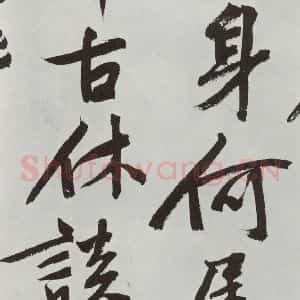 身何居
古休談
Shufawang.CN